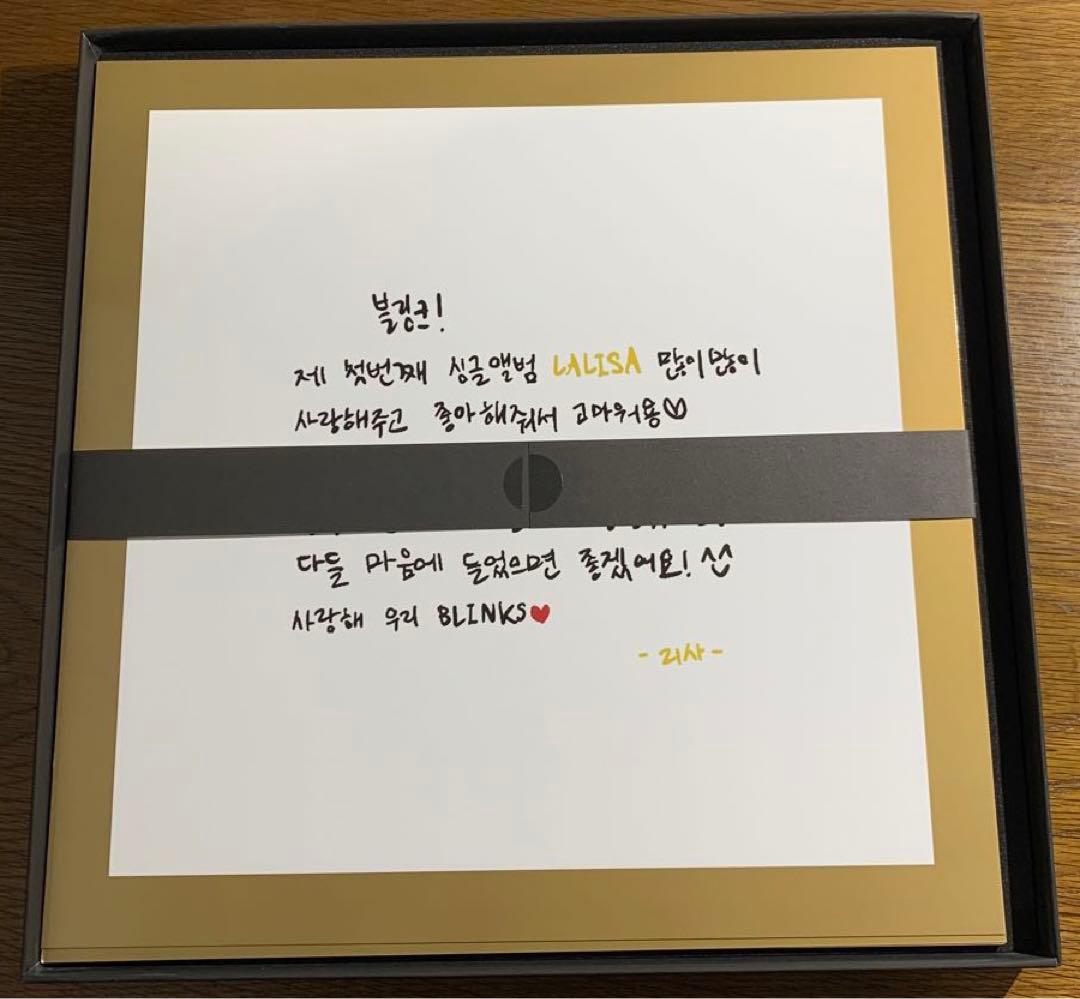 블링크!
제 첫번째 싱글앨범 LALISA 많이많이
사랑해주고 좋아해줘서 고마워용♡
다들 마음에 들었으면 좋겠어요! ^^
사랑해 우리 BLINKS♥
- 리사 -